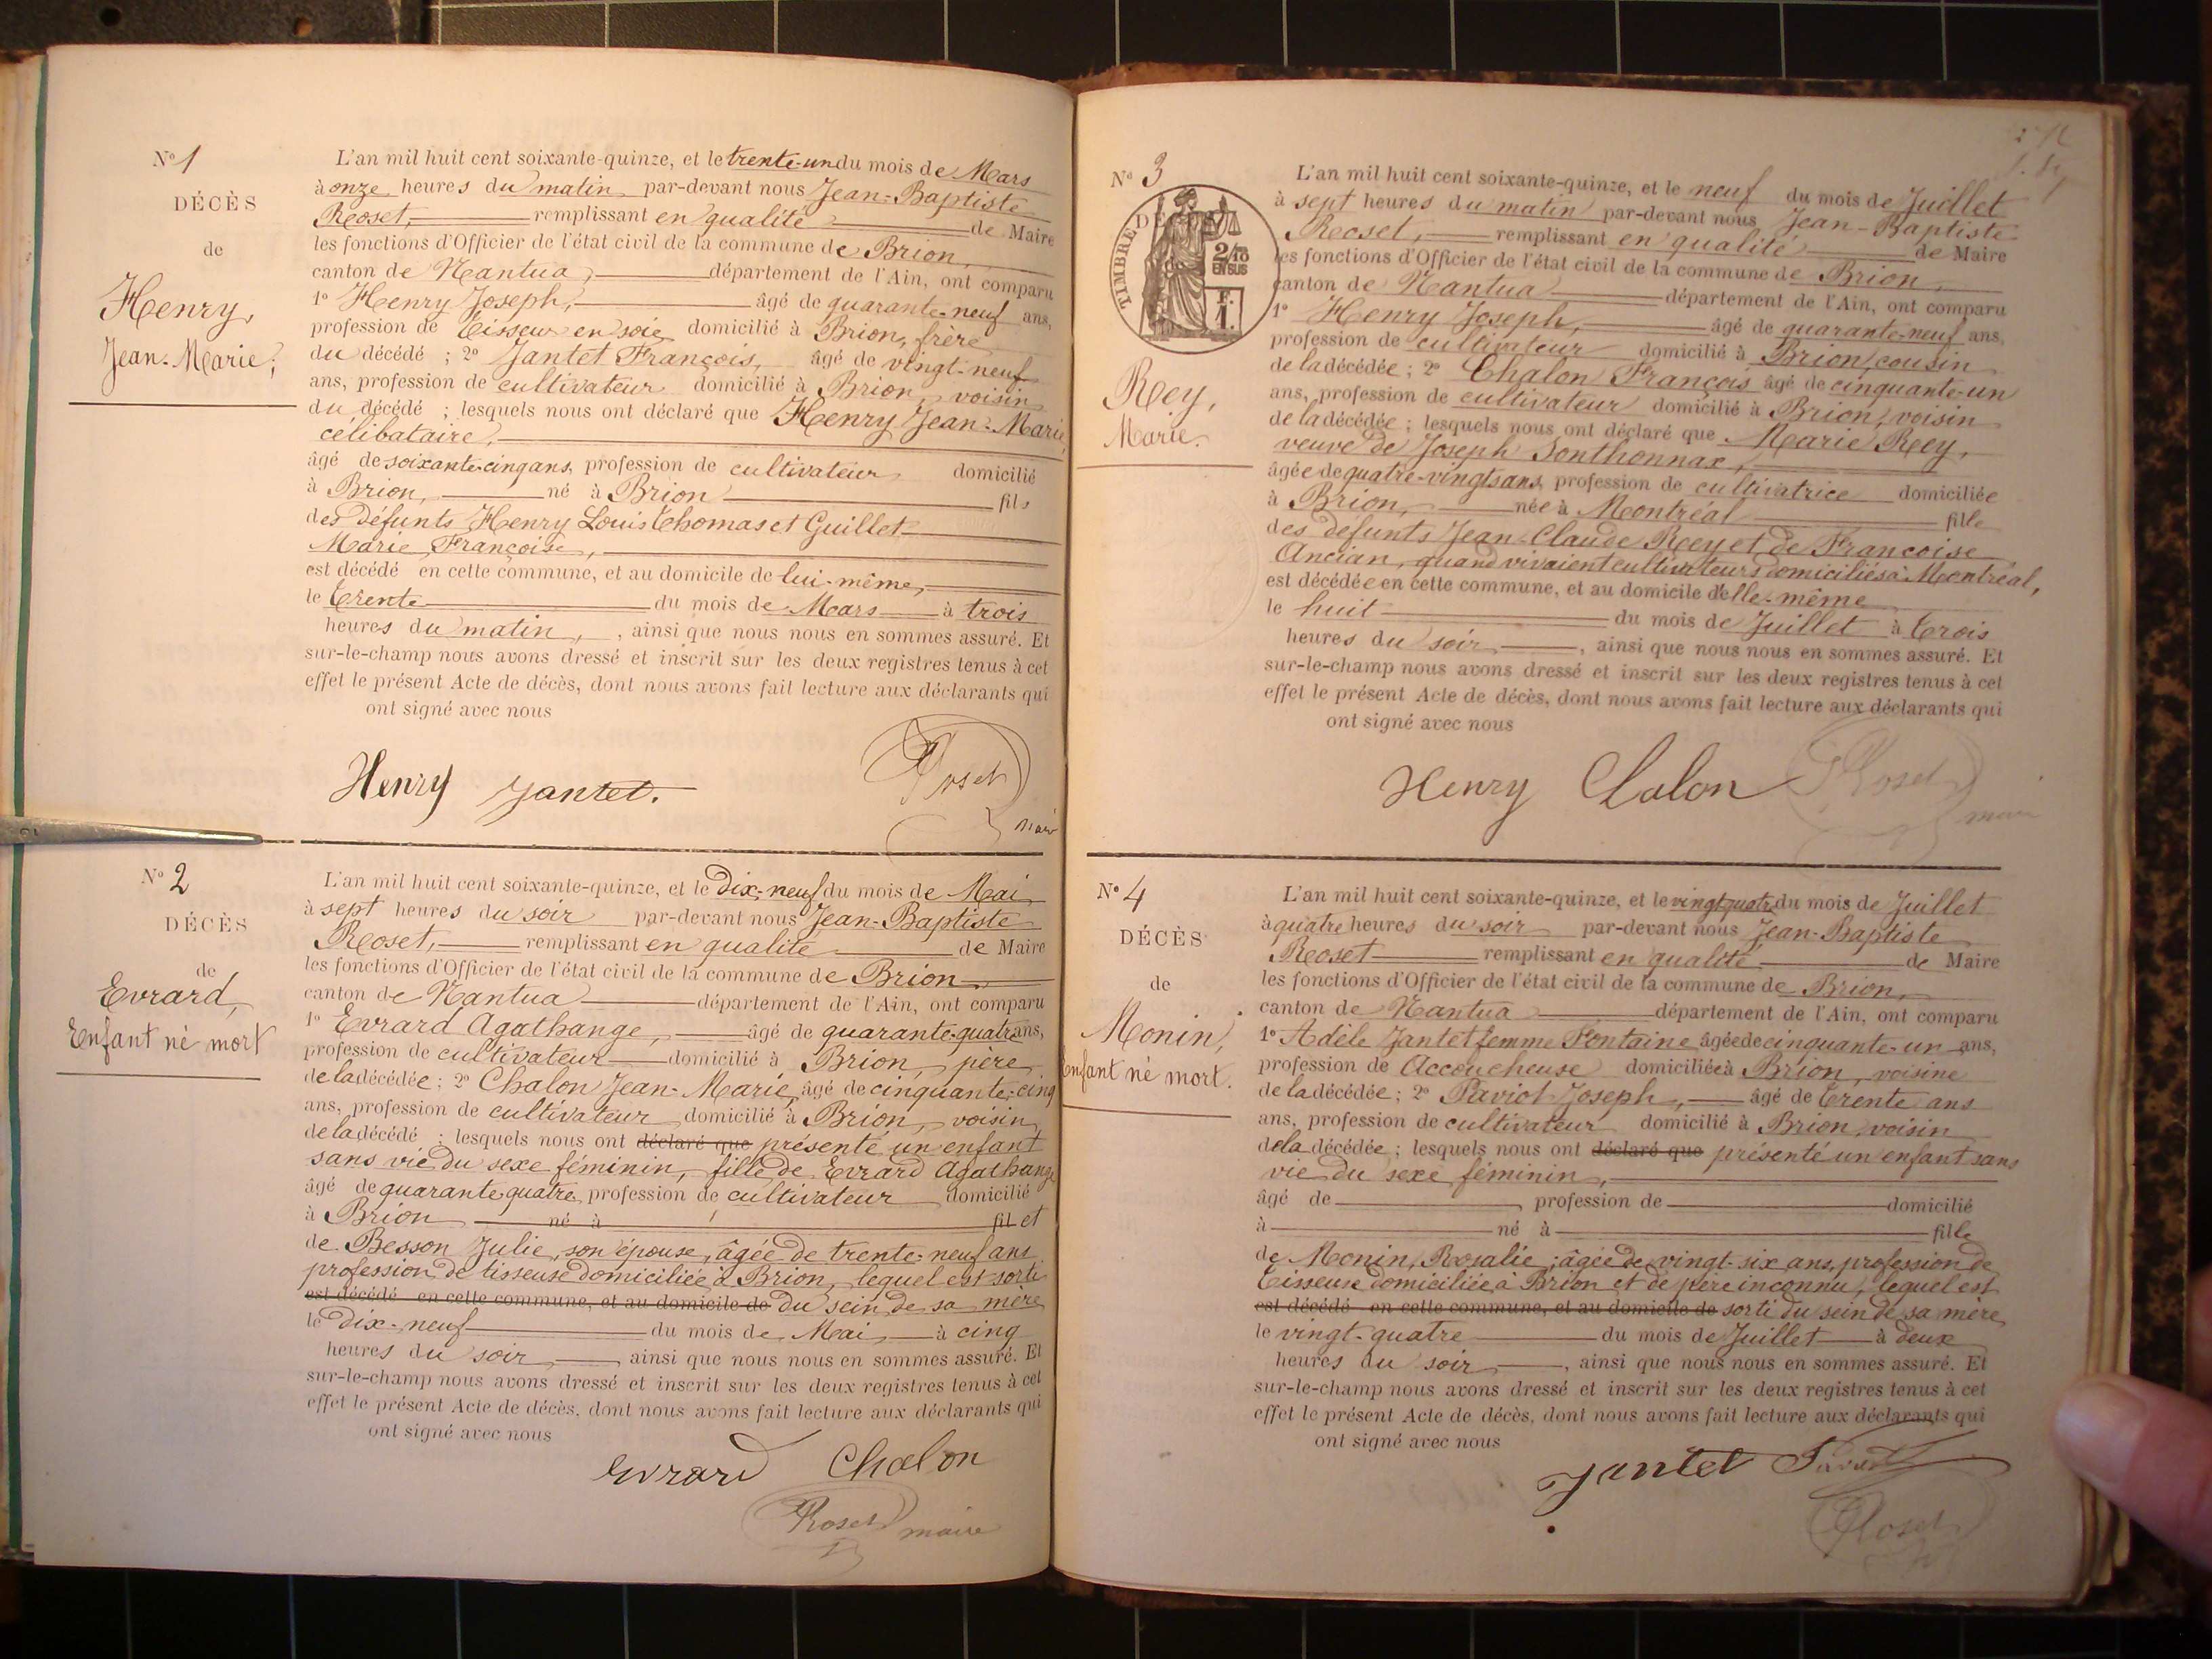 N° 1
DÉCÈS
de
Henry,
Jean-Marie;
L'an mil huit cent soixante-quinze, et le trente-un du mois de Mars
à onze heures du matin par-devant nous Jean-Baptiste
Roset, remplissant en qualité de Maire
les fonctions d'Officier de l'état civil de la commune de Brion,
canton de Nantua, département de l'Ain, ont comparu
1° Henry Joseph, âgé de quarante-neuf ans,
profession de Tisseur en soie domicilié à Brion, frère
du décédé ; 2° Jantet François, âgé de vingt-neuf
ans, profession de cultivateur domicilié à Brion, voisin
du décédé ; lesquels nous ont déclaré que Henry Jean-Marie,
célibataire,
âgé de soixante-cinq ans, profession de cultivateur domicilié
à Brion, né à Brion fils
des défunts Henry Louis Thomas et Guillet
Marie Françoise,
est décédé en cette commune, et au domicile de lui-même,
le Trente du mois de Mars à trois
heures du matin, , ainsi que nous nous en sommes assuré. Et
sur-le-champ nous avons dressé et inscrit sur les deux registres tenus à cet
effet le présent Acte de décès, dont nous avons fait lecture aux déclarants qui
ont signé avec nous
Henry Jantet. Roset
maire
N° 2
DÉCÈS
de
Evrard,
Enfant né mort
L'an mil huit cent soixante-quinze, et le Dix-neuf du mois de Mai
à sept heures du soir par-devant nous Jean-Baptiste
Roset, remplissant en qualité de Maire
les fonctions d'Officier de l'état civil de la commune de Brion
canton de Nantua département de l'Ain, ont comparu
1° Evrard Agathange, âgé de quarante-quatre ans,
profession de cultivateur domicilié à Brion, père
de la décédée ; 2° Chalon Jean-Marie, âgé de cinquante-cinq
ans, profession de cultivateur domicilié à Brion, voisin
de la décédé ; lesquels nous ont déclaré que présenté un enfant
sans vie du sexe féminin, fille de Evrard Agathange
âgé de quarante quatre profession de cultivateur domicilié
à Brion né à fil et
de Besson Julie, son épouse, âgée de trente-neuf ans
profession de tisseuse domiciliée à Brion, lequel est sorti
est décédé en cette commune, et au domicile de du sein de sa mère
le Dix-neuf du mois de Mai, à cinq
heures du soir, ainsi que nous nous en sommes assuré. Et
sur-le-champ nous avons dressé et inscrit sur les deux registres tenus à cet
effet le présent Acte de décès, dont nous avons fait lecture aux déclarants qui
ont signé avec nous
Evrard Chalon
Roset maire
N° 3
DÉCÈS
TIMBRE
2/10
EN SUS
F.
1.
Rey,
Marie.
L'an mil huit cent soixante-quinze, et le neuf du mois de Juillet
à sept heures du matin par-devant nous Jean-Baptiste
Roset, remplissant en qualité de Maire
les fonctions d'Officier de l'état civil de la commune de Brion,
canton de Nantua département de l'Ain, ont comparu
1° Henry Joseph, âgé de quarante-neuf ans,
profession de cultivateur domicilié à Brion, cousin
de la décédée ; 2° Chalon François âgé de cinquante-un
ans, profession de cultivateur domicilié à Brion, voisin
de la décédée ; lesquels nous ont déclaré que Marie Rey,
veuve de Joseph Sonthonnax,
âgée de quatre-vingts ans, profession de cultivatrice domiciliée
à Brion, née à Montréal fille
des défunts Jean-Claude Rey et de Françoise
Ancian, quand vivaient cultivateurs domiciliés à Montréal,
est décédée en cette commune, et au domicile d'elle-même
le huit du mois de Juillet à Trois
heures du soir , ainsi que nous nous en sommes assuré. Et
sur-le-champ nous avons dressé et inscrit sur les deux registres tenus à cet
effet le présent Acte de décès, dont nous avons fait lecture aux déclarants qui
ont signé avec nous
Henry Chalon Roset
maire
N° 4
DÉCÈS
de
Monin,
Enfant né mort.
L'an mil huit cent soixante-quinze, et le vingt quatre du mois de Juillet
à quatre heures du soir par-devant nous Jean-Baptiste
Roset remplissant en qualité de Maire
les fonctions d'Officier de l'état civil de la commune de Brion,
canton de Nantua département de l'Ain, ont comparu
1° Adèle Jantet femme Fontaine âgée de cinquante-un ans,
profession de Accoucheuse domiciliée à Brion, voisine
de la décédée ; 2° Paviot Joseph, âgé de Trente ans
ans, profession de cultivateur domicilié à Brion, voisin
de la décédée ; lesquels nous ont déclaré que présenté un enfant sans
vie du sexe féminin,
âgé de , profession de domicilié
à né à fille
de Monin, Rosalie, âgée de vingt-six ans, profession de
Tisseuse domiciliée à Brion et de père inconnu, lequel est
est décédé en cette commune, et au domicile de sorti du sein de sa mère
le vingt-quatre du mois de Juillet à deux
heures du soir , ainsi que nous nous en sommes assuré. Et
sur-le-champ nous avons dressé et inscrit sur les deux registres tenus à cet
effet le présent Acte de décès, dont nous avons fait lecture aux déclarants qui
ont signé avec nous
Jantet Paviot
Roset